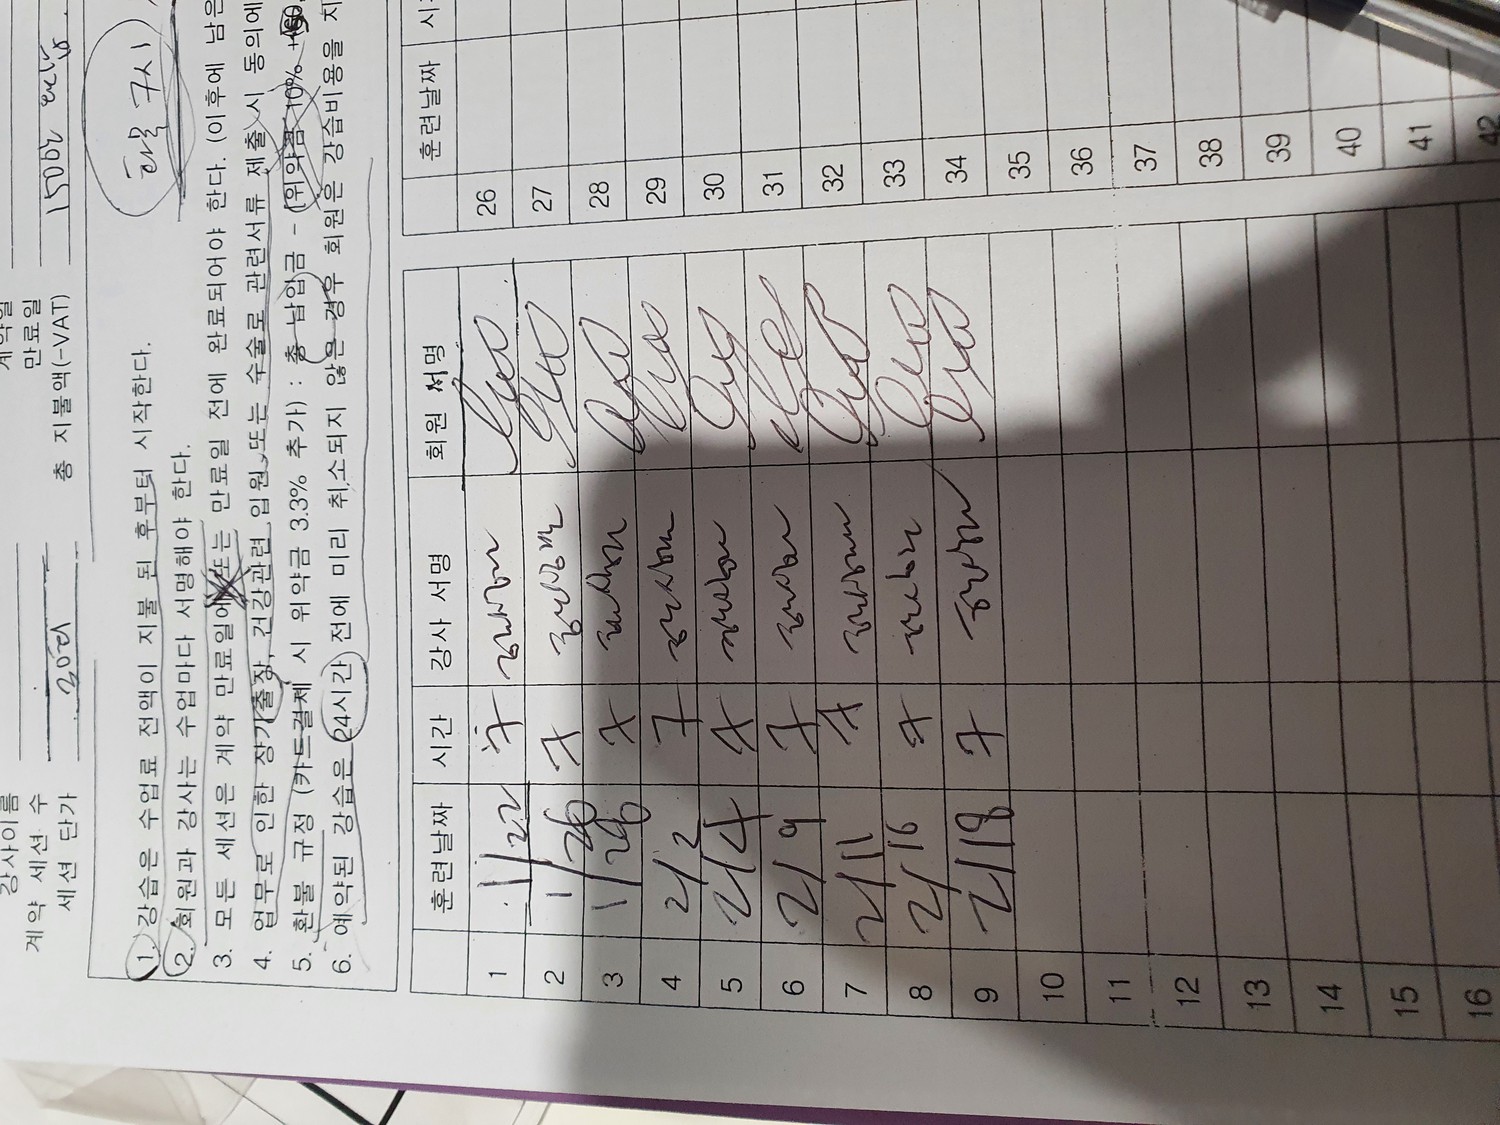 강사이름
계약 세션 수
세션 단가
계약일
만료일
총 지불액(-VAT)
150만
화목 7시
1. 강습은 수업료 전액이 지불 된 후부터 시작한다.
2. 회원과 강사는 수업마다 서명해야 한다.
3. 모든 세션은 계약 만료일에 또는 만료일 전에 완료되어야 한다. (이후에 남은
4. 업무로 인한 장기출장, 건강관련 입원 또는 수술로 관련서류 제출 시 동의에
5. 환불 규정 (카드결제 시 위약금 3.3% 추가) : 총 납입금 - (위약금 10% +
6. 예약된 강습은 24시간 전에 미리 취소되지 않은 경우 회원은 강습비용을 지
훈련날짜 시간 강사 서명 회원 서명
1 1/22 7
2 1/26 7
3 1/28 7
4 2/2 7
5 2/4 7
6 2/9 7
7 2/11 7
8 2/16 7
9 2/18 7
10
11
12
13
14
15
16
훈련날짜
26
27
28
29
30
31
32
33
34
35
36
37
38
39
40
41
42